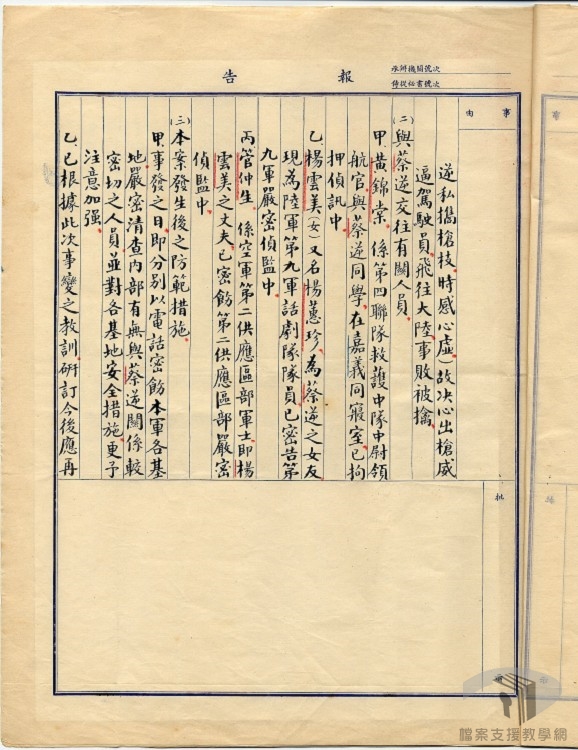 報告
承辦機關號次
侍從秘書號次
事由
逆私攜槍枝,時感心虛)故決心出槍威
逼駕駛員,飛往大陸,事敗被擒。
(二)與蔡逆交往有關人員。
甲.黃錦棠,係第四聯隊救護中隊中尉領
航官,與蔡逆同學,在嘉義同寢室,已拘
押偵訊中。
乙.楊雲美(女)又名楊蕙珍,為蔡逆之女友
現為陸軍第九軍話劇隊隊員,已密告第
九軍嚴密偵監中。
丙.管仲生,係空軍第二供應區部軍士,即楊
雲美之丈夫,已密飭第二供應區部嚴密
偵監中。
(三)本案發生後之防範措施。
甲.事發之日,即分別以電話密飭本軍各基
地,嚴密清查內部有無與蔡逆關係較
密切之人員,並對各基地安全措施,更予
注意加強。
乙.已根據此次事變之教訓,研訂今後應再
批
檔案支援教學網